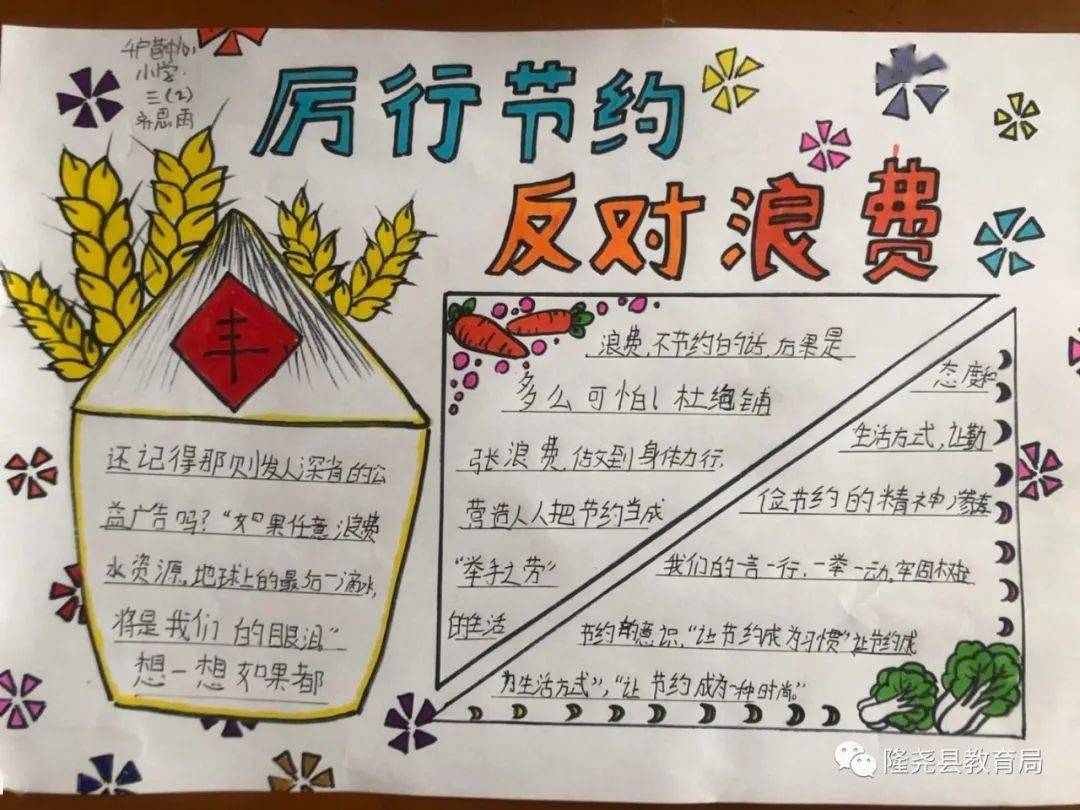 小学
三(2)
齐思雨
厉行节约
反对浪费
丰
还记得那则发人深省的公
益广告吗?“如果任意浪费
水资源,地球上的最后一滴水,
将是我们的眼泪”
想一想如果都
浪费,不节约的话,后果是
多么可怕!杜绝铺
张浪费,做到身体力行,
营造人人把节约当成
“举手之劳”
的生活
态度和
生活方式,让勤
俭节约的精神渗透
我们的一言一行,一举一动,牢固树立
节约的意识,“让节约成为习惯”让节约成
为生活方式”,“让节约成为一种时尚。”
隆尧县教育局